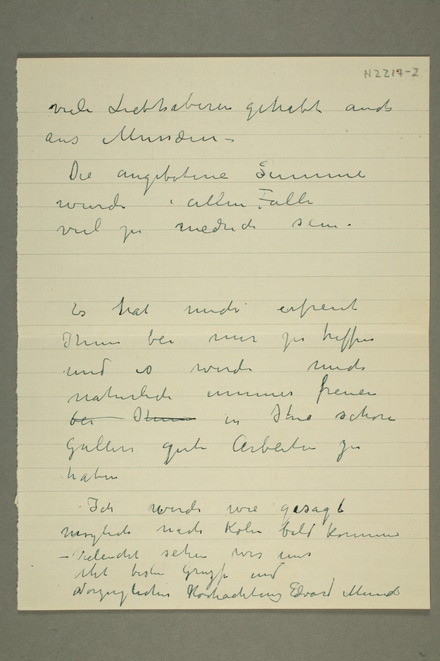 N 2219-2
viele Liebhaberen gehabt auch
aus Museen –
Die angebotene Summe
wurde allen Falls
viel zu niedrich sein.
Es hat mich erfreut
Ihnen bei mir zu treffen
und es wurde mich
naturlich immer freuen
bei Ihnen in Ihre schöne
Gallerie gute Arbeiten zu
haben
Ich werde wie gesagt
möglich nach Koln bald kommen
– Vieleicht sehen wir uns
Mit besten Grusse und
Vorzuglichen Hochachtung Edvard Munch